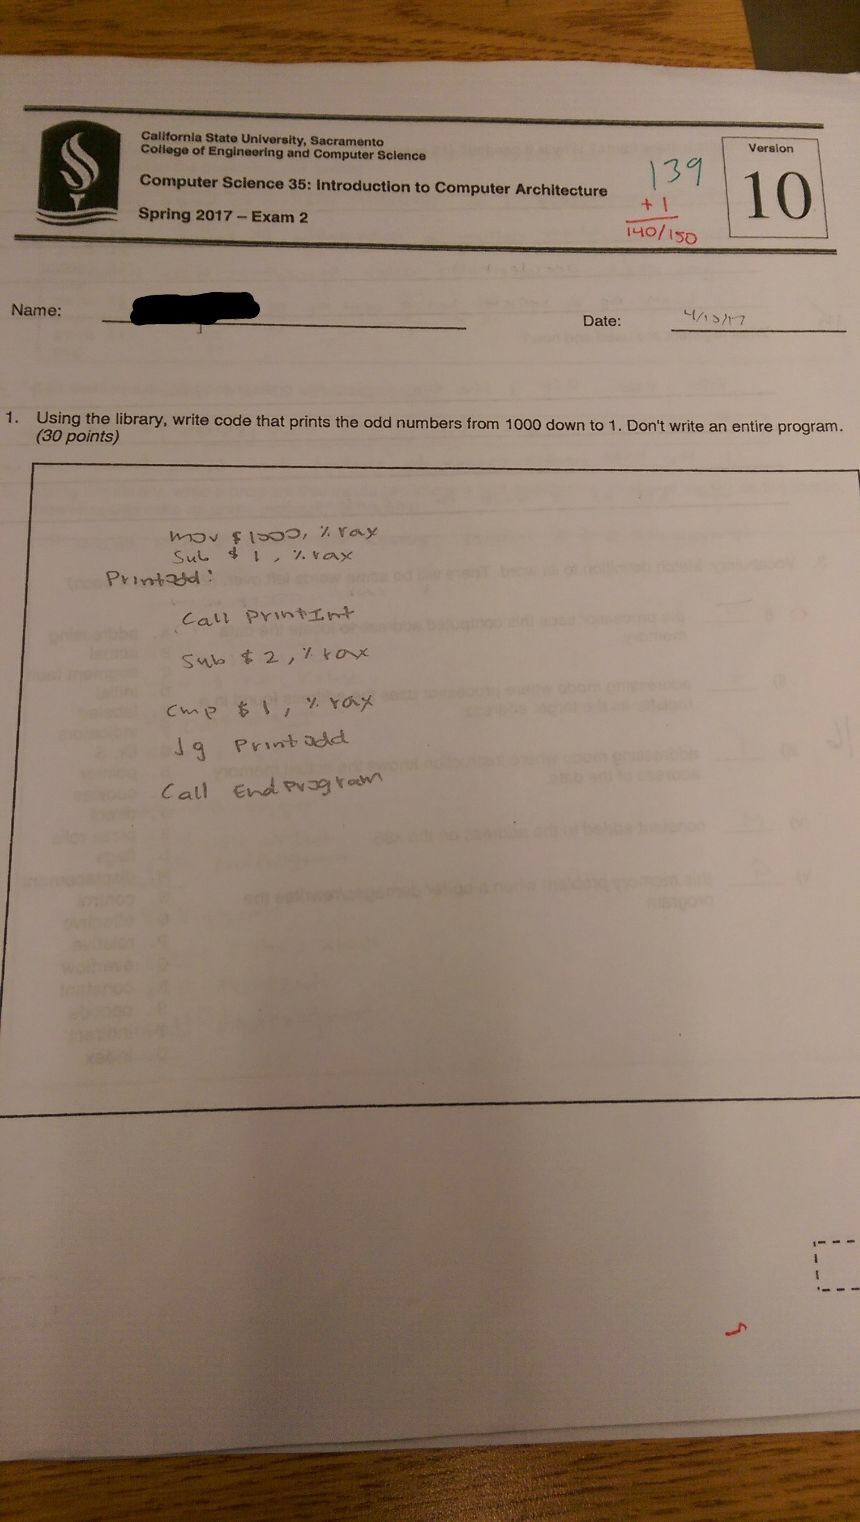 California State University, Sacramento
College of Engineering and Computer Science
Computer Science 35: Introduction to Computer Architecture
Spring 2017 – Exam 2
139
+ 1
140/150
Version
10
Name:
Date:
1. Using the library, write code that prints the odd numbers from 1000 down to 1. Don't write an entire program.
(30 points)
mov $1000, % rax
Sub $ 1, % rax
Printodd:
Call PrintInt
Sub $ 2, % rax
Cmp $ 1, % rax
Jg Printodd
Call EndProgram